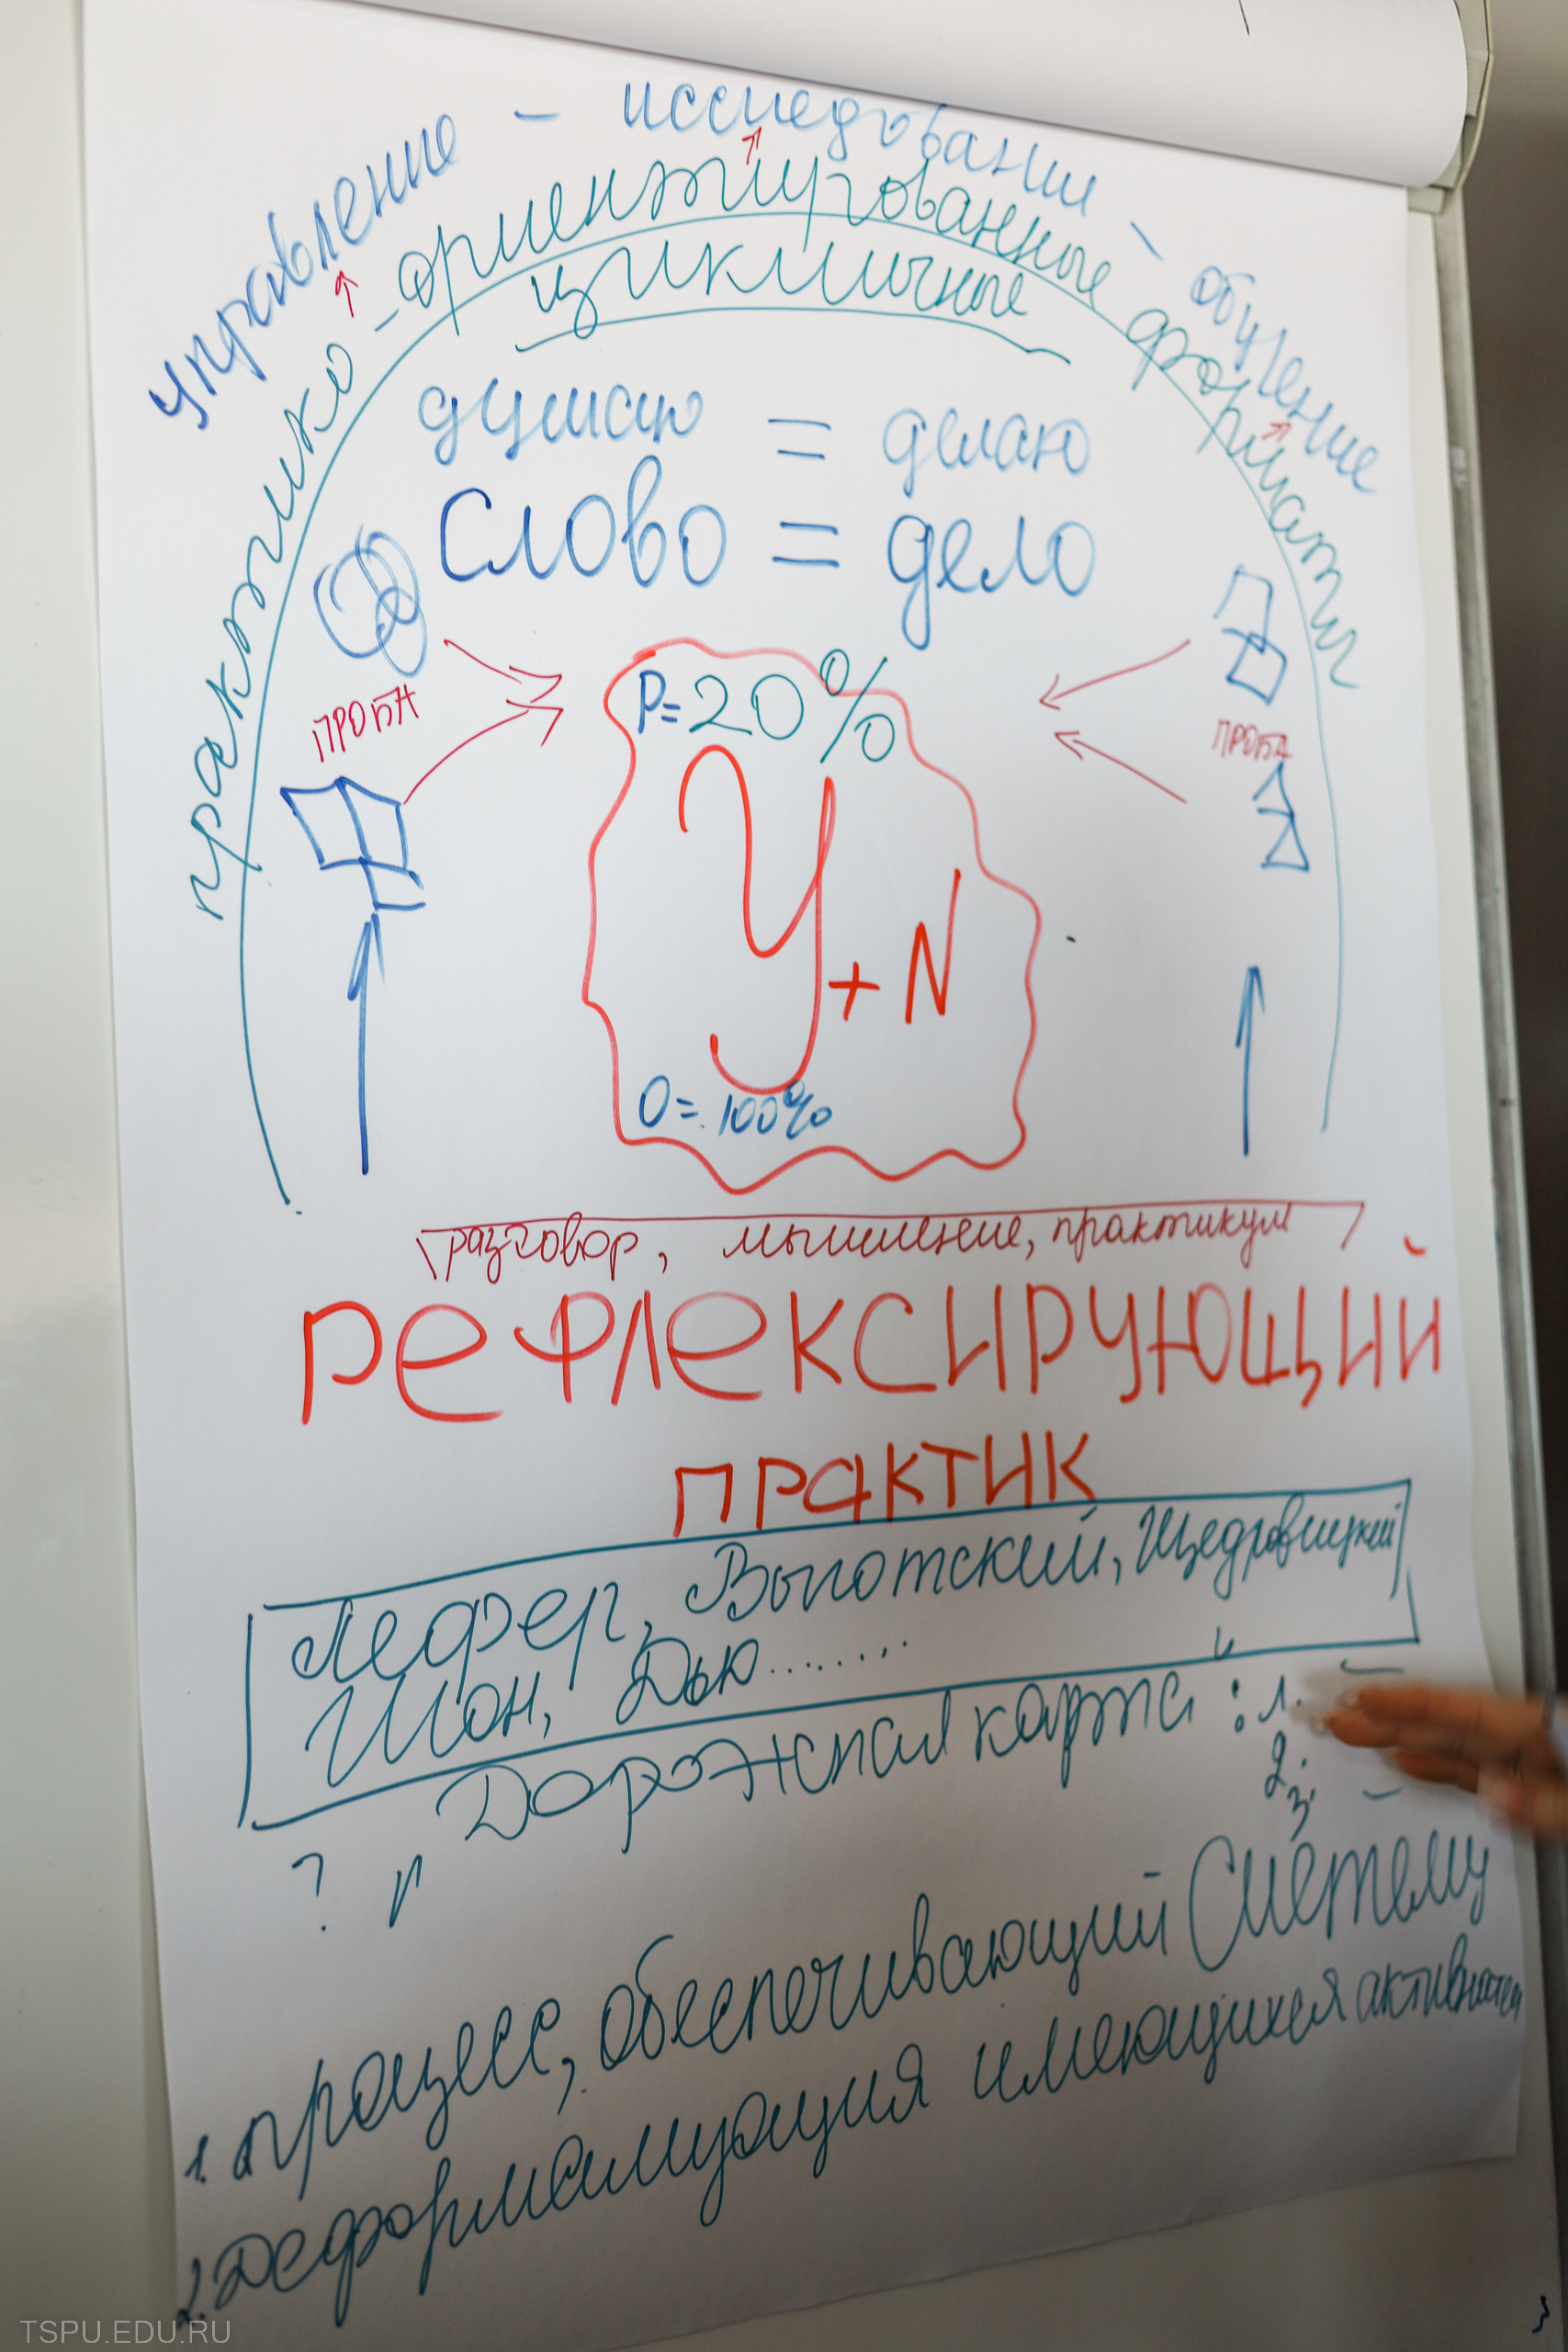 управление - исследование - обучение
практико-ориентированные форматы
цикличные
думаю = делаю
Слово = дело
ПРОБА
ПРОБА
P=20%
У+N
О=100%
разговор, мышление, практикум
РЕФЛЕКСИРУЮЩИЙ
ПРАКТИК
Лефевр, Выготский, Щедровицкий
Шон, Дью........
Дорожная карта: 1. –
2.
3. –
?
1. процесс, обеспечивающий систему
2. Деформализация имеющихся
TSPU.EDU.RU